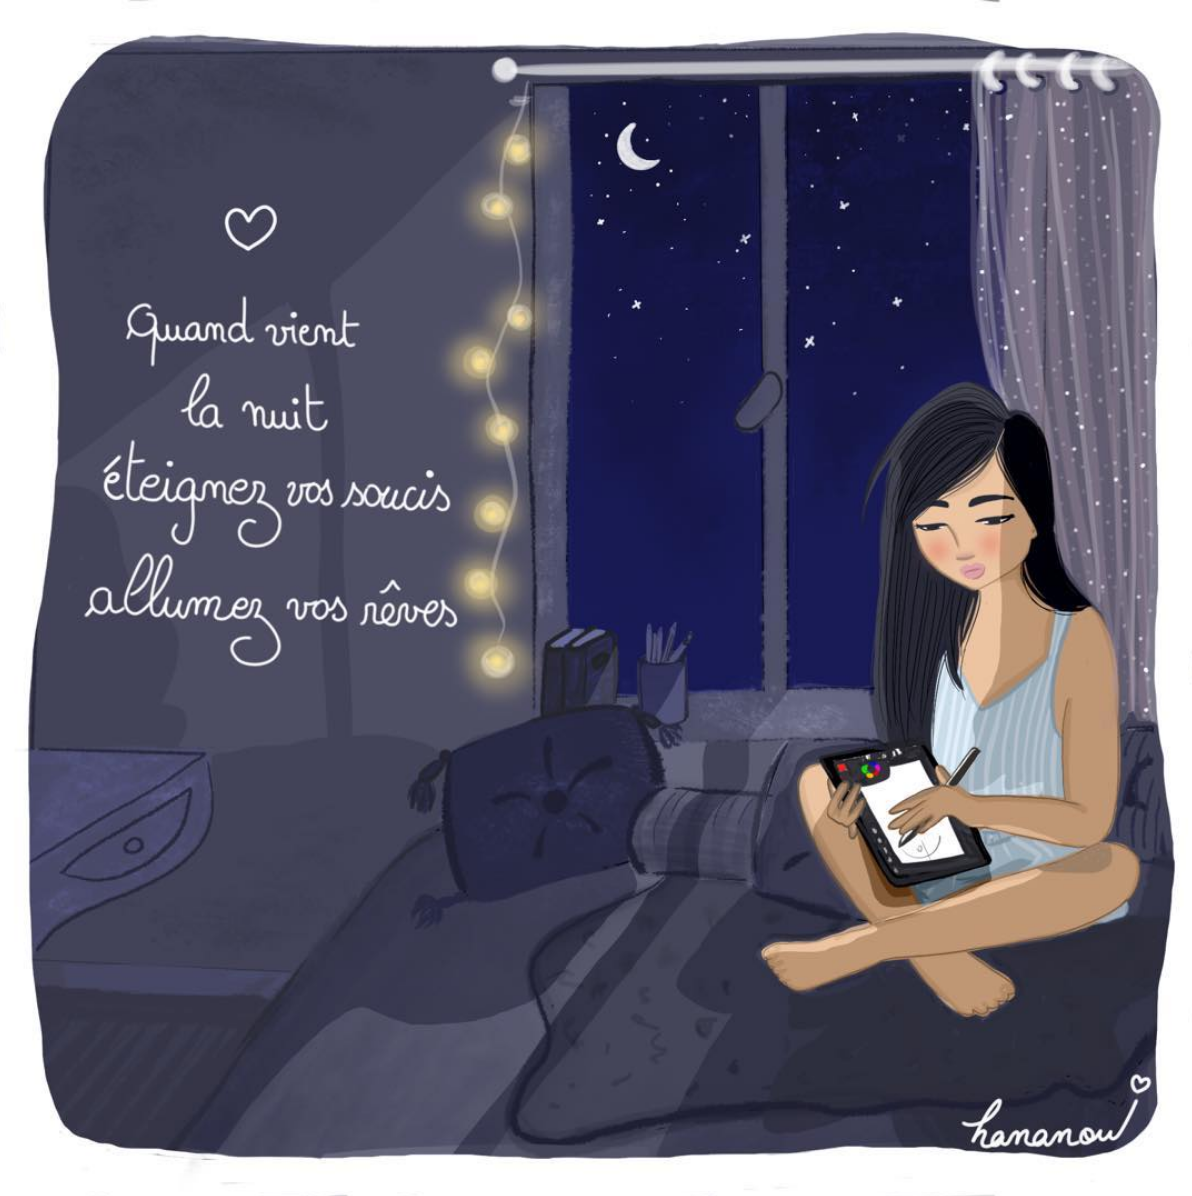 Quand vient
la nuit
éteignez vos soucis
allumez vos rêves
hananoui